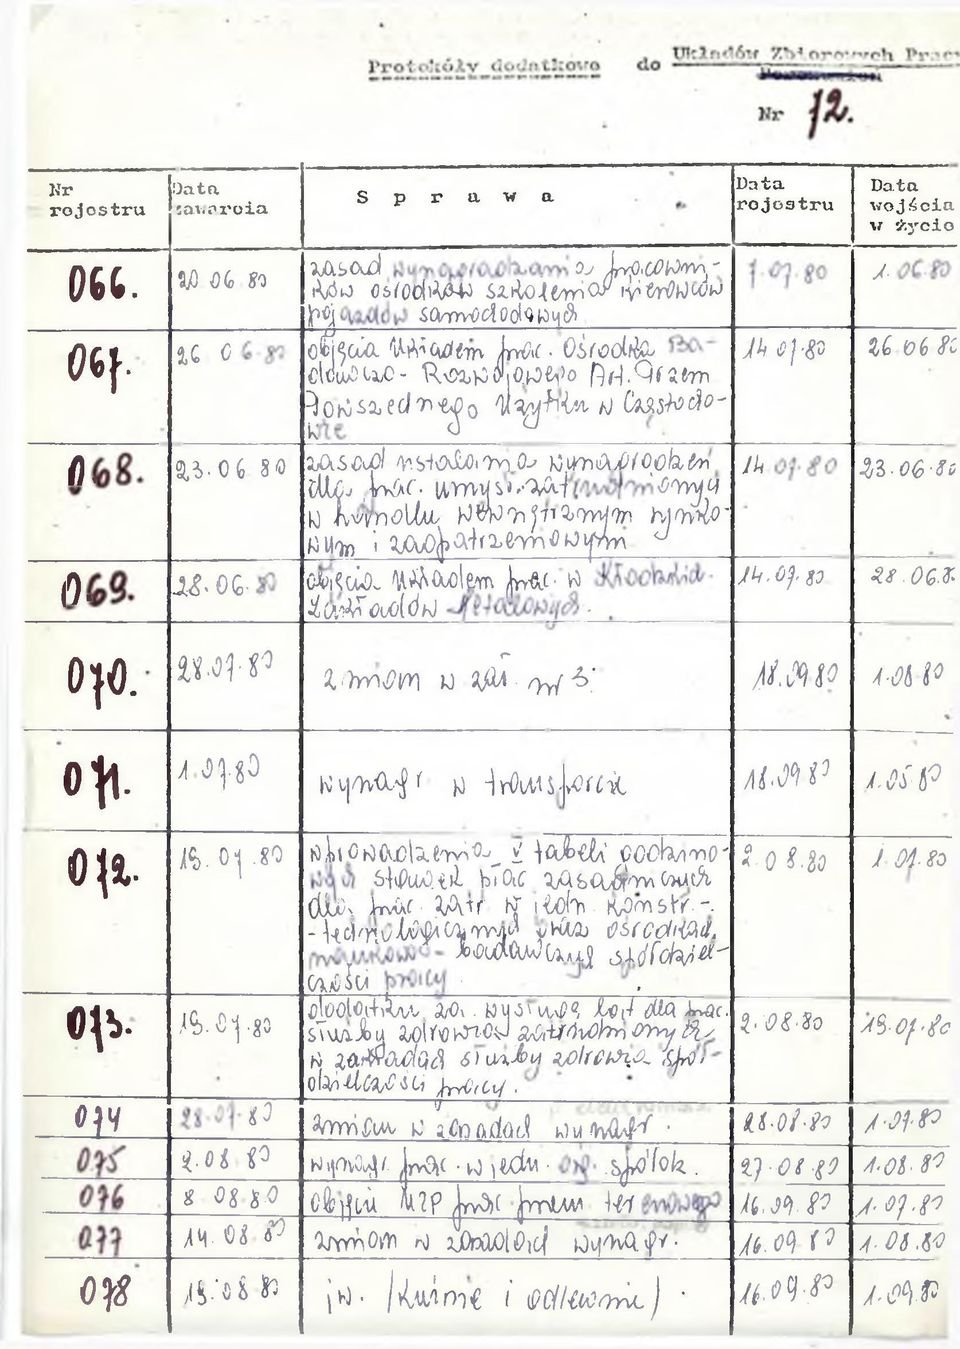 Protokóły dodatkowe do Układów Zbiorowych Pracy
Nr 12.
Nr rejestru | Data zawarcia | S p r a w a | Data rejestru | Data wejścia w życie
066. | 20.06.80 | zasad wynagradzania pracowni- | 7.07.80 | 1.06.80
ków ośrodków szkolenia kierowców
pojazdów samochodowych
067. | 26.06.80 | objęcia układem prac. Ośrodka Ba- | 14.07.80 | 26.06.80
dawczo-Rozwojowego Art. Grzem
Powszednego Użytku w Częstocho-
wie
068. | 23.06.80 | zasad ustalania wynagrodzeń | 14.07.80 | 23.06.80
dla prac. umysł. zatrudnionych
w handlu wewnętrznym rynko-
wym i zaopatrzeniowym
069. | 28.06.80 | objęcia układem prac. w Kłodzkich | 14.07.80 | 28.06.8
Zakładów Metalowych.
070. | 28.07.80 | zmian w zał. nr 3. | 18.09.80 | 1.08.80
071. | 1.07.80 | wynagr. w transporcie | 18.09.80 | 1.05.80
072. | 19.07.80 | wprowadzenia V tabeli godzino- | 2.08.80 | 1.07.80
wych stawek płac zasadniczych
dla prac. zatr. w jedn. konstr.-
-technologicznych oraz ośrodkach
naukowo-badawczych spółdziel-
czości pracy.
073. | 19.07.80 | dodatku za wysługę lat dla prac. | 2.08.80 | 19.07.80
służby zdrowia zatrudnionych
w zakładach służby zdrowia spół-
dzielczości pracy.
074 | 28.07.80 | zmian w zasadach wynagr. | 28.08.80 | 1.07.80
075 | 2.08.80 | wynagr. prac. w jedn. org. spółdz. | 27.08.80 | 1.08.80
076 | 8.08.80 | objęcia UZP prac. przem. terenowego | 16.09.80 | 1.07.80
077 | 14.08.80 | zmian w zasadach wynagr. | 16.09.80 | 1.08.80
078 | 19.08.80 | jw. /kuźnie i odlewnie/ | 16.09.80 | 1.09.80